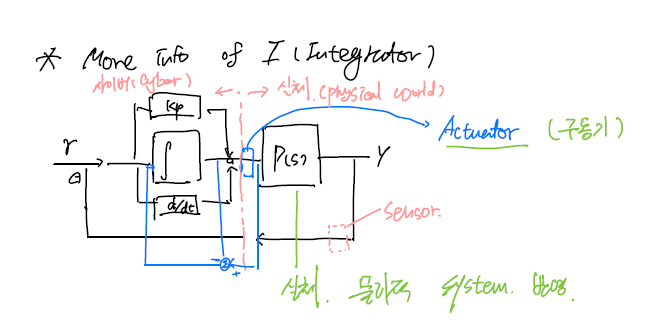 * More info of I (Integrator)
사이버(Cyber) ← → 실체. (physical world)
Kp
Actuator (구동기)
r
∫
P(s)
Y
⊖
d/dt
sensor.
+
실체. 물리적 system. 반영.